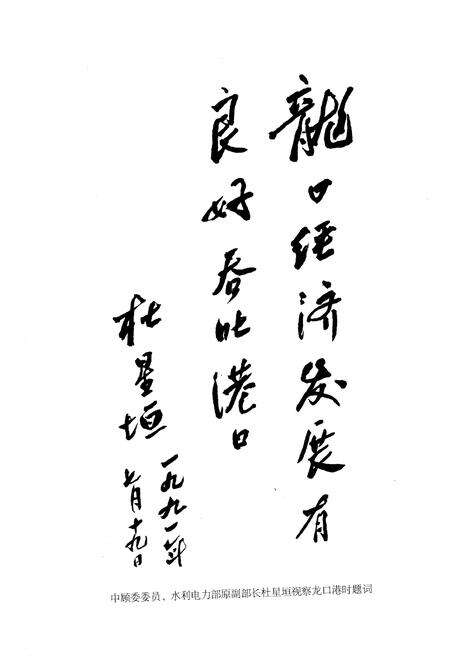 龍口经济发展有
良好吞吐港口
杜星垣
一九九一年
七月十九日
中顾委委员、水利电力部原副部长杜星垣视察龙口港时题词